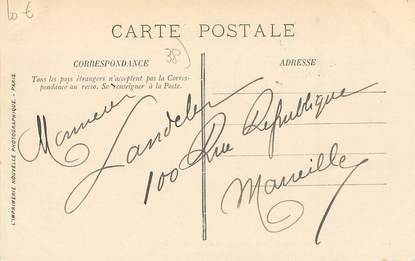 60 €
38
CARTE POSTALE
CORRESPONDANCE
Tous les pays étrangers n'acceptent pas la Corres-
pondance au recto. Se renseigner à la Poste.
ADRESSE
Monsieur
Landeler
100 Rue République
Marseille
L'IMPRIMERIE NOUVELLE PHOTOGRAPHIQUE - PARIS